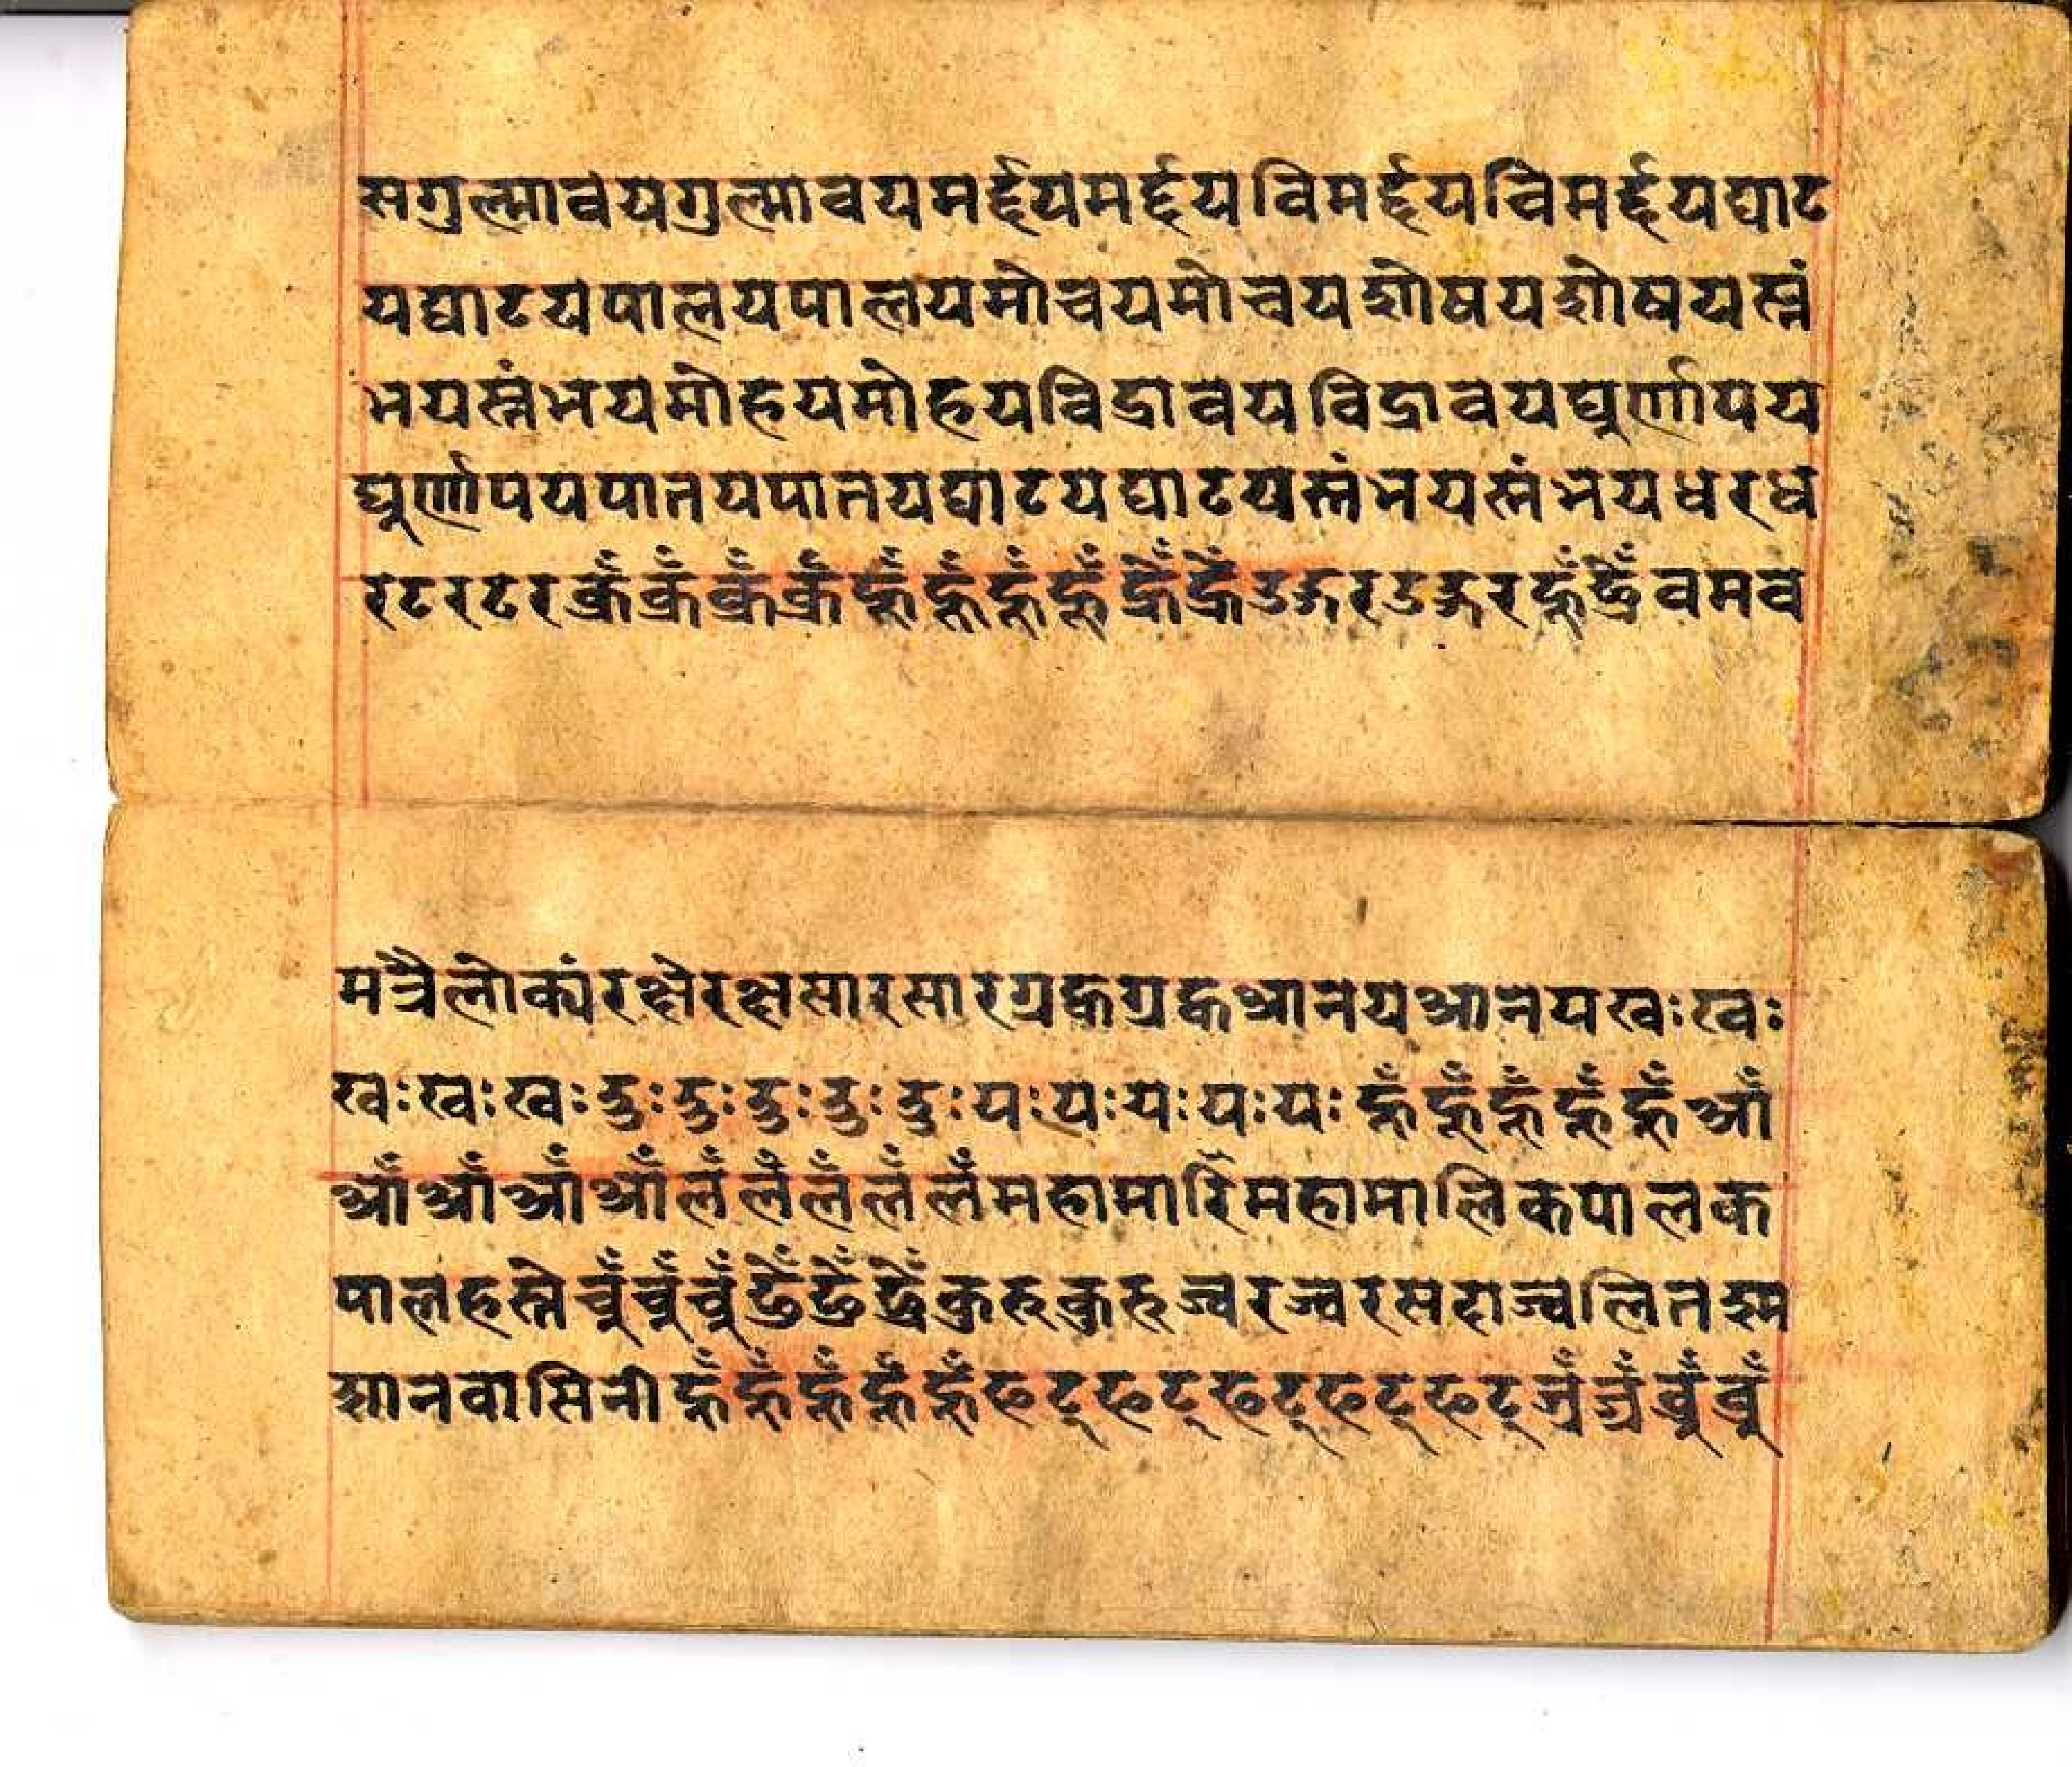 सगुल्मावयगुल्मावयमर्द्दयमर्द्दयविमर्द्दयविमर्द्दयघाट
यघाटयपालयपालयमोचयमोचयशोषयशोषयस्तं
भयस्तंभयमोहयमोहयविद्रावयविद्रावयघूर्णापय
घूर्णापयपातयपातयघाटयघाटयस्तंभयस्तंभयधरध
रटरटरक्रँक्रँक्रँक्रँह्रूँह्रूँह्रूँह्रूँ
मत्रैलोक्यंरक्षेरक्षसारसारग्रह्णग्रह्णआनयआनयखः खः
खः खः खः दुः दुः दुः दुः दुः यः यः यः यः यः हूँहूँहूँहूँहूँआँ
आँआँआँआँलँलँलँलँलँमहामारिमहामालिकपालक
पालहस्तेचूँचूँचूँकुरुकुरुज्वरज्वरसदाज्वलितश्म
शानवासिनीहूँहूँहूँहूँहूँफट्फट्फट्फट्फट्